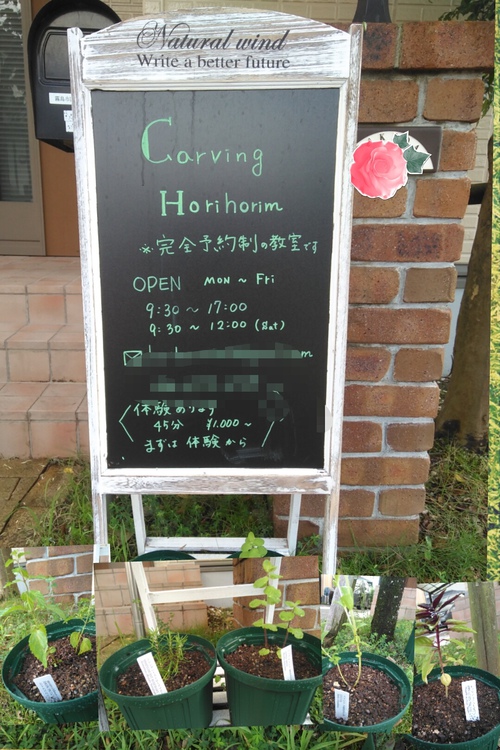 Natural wind
Write a better future
Carving
Horihorim
※完全予約制の教室です
OPEN MON ~ Fri
9:30 ~ 17:00
9:30 ~ 12:00 (Sat)
体験あります
45分 ¥1.000~
まずは 体験から